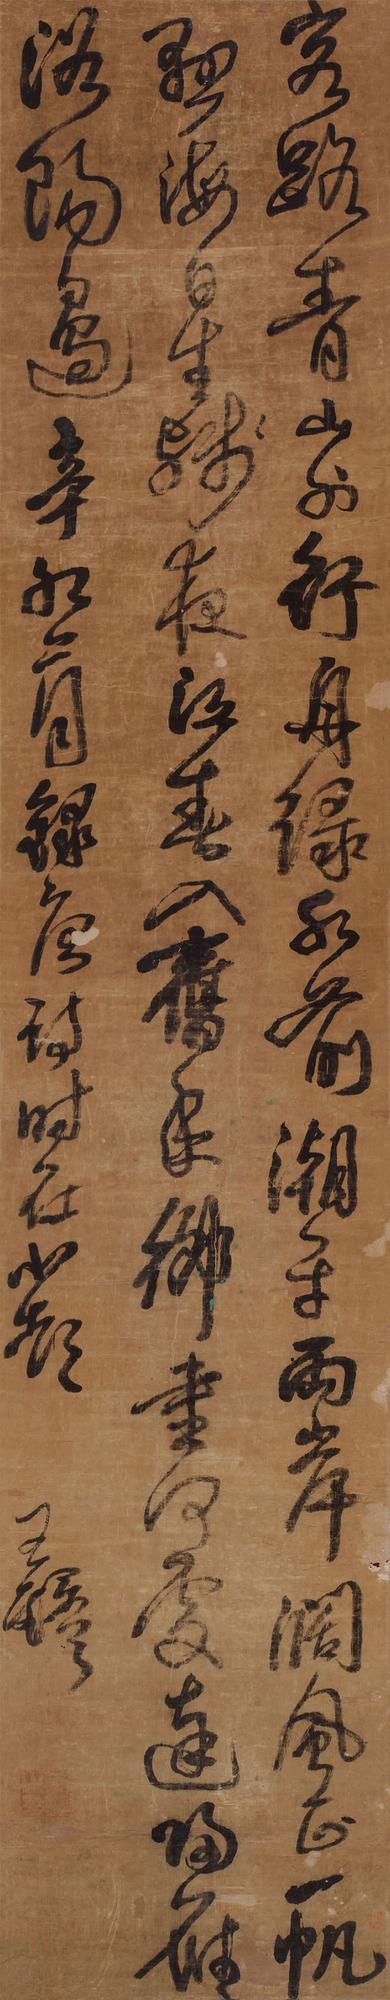 客路青山外行舟綠水前潮平兩岸濶風正一帆
懸海日生殘夜江春入舊年鄉書何處達歸雁
洛陽邊 辛卯月錄唐詩時在小 王鐸